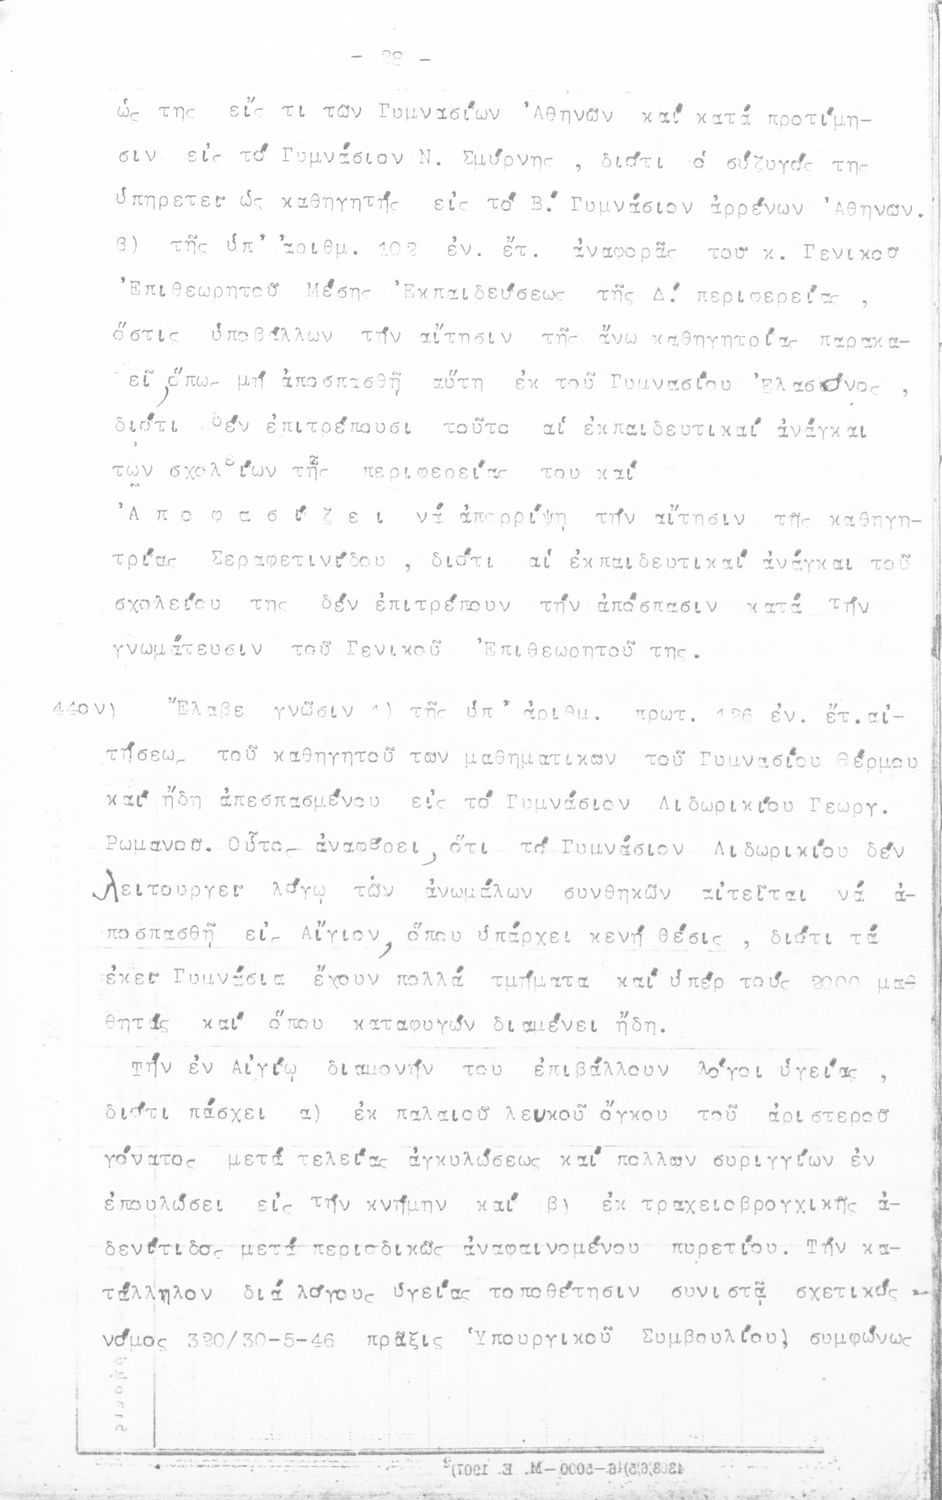 - 28 -
ὡς της εἴς τι τῶν Γυμνασίων Ἀθηνῶν καί κατά προτίμη-
σιν εἰς τό Γυμνάσιον Ν. Σμύρνης , διότι ὁ σύζυγός της
ὑπηρετεῖ ὡς καθηγητής εἰς τό Β.' Γυμνάσιον ἀρρένων Ἀθηνῶν.
β) τῆς ὑπ' ἀριθμ. 102 ἐν. ἔτ. ἀναφορᾶς τοῦ κ. Γενικοῦ
Ἐπιθεωρητοῦ Μέσης Ἐκπαιδεύσεως τῆς Δ.' περιφερείας ,
ὅστις ὑποβάλλων τήν αἴτησιν τῆς ἄνω καθηγητρίας παρακα-
εῖ, ὅπω- μή ἀποσπασθῇ αὕτη ἐκ τοῦ Γυμνασίου Ἐλασσόνος ,
διότι δέν ἐπιτρέπουσι τοῦτο αἱ ἐκπαιδευτικαί ἀνάγκαι
τῶν σχολείων τῆς περιφερείας του καί
Ἀ π ο φ α σ ί ζ ε ι νά ἀπορρίψῃ τήν αἴτησιν τῆς καθηγη-
τρίας Σεραφετινίδου , διότι αἱ ἐκπαιδευτικαί ἀνάγκαι τοῦ
σχολείου της δέν ἐπιτρέπουν τήν ἀπόσπασιν κατά τήν
γνωμάτευσιν τοῦ Γενικοῦ Ἐπιθεωρητοῦ της.
44ον) Ἔλαβε γνῶσιν 1) τῆς ὑπ' ἀριθμ. πρωτ. 126 ἐν. ἔτ. αἰ-
τήσεω- τοῦ καθηγητοῦ των μαθηματικων τοῦ Γυμνασίου Θέρμου
καί ἤδη ἀπεσπασμένου εἰς τό Γυμνάσιον Λιδωρικίου Γεωργ.
Ρωμανοῦ. Οὗτο- ἀναφέρει, ὅτι τό Γυμνάσιον Λιδωρικίου δέν
λειτουργεῖ λόγῳ τῶν ἀνωμάλων συνθηκῶν αἰτεῖται νά ἀ-
ποσπασθῇ εἰ- Αἴγιον, ὅπου ὑπάρχει κενή θέσις , διότι τά
ἐκεῖ Γυμνάσια ἔχουν πολλά τμήματα καί ὑπέρ τούς 2000 μαθ
θητάς καί ὅπου καταφυγών διαμένει ἤδη.
Τήν ἐν Αἰγίῳ διαμονήν του ἐπιβάλλουν λόγοι ὑγείας ,
διότι πάσχει α) ἐκ παλαιοῦ λευκοῦ ὄγκου τοῦ ἀριστεροῦ
γόνατος μετά τελείας ἀγκυλώσεως καί πολλων συριγγίων ἐν
ἐπουλώσει εἰς τήν κνήμην καί β) ἐκ τραχειοβρογχικῆς ἀ-
δενίτιδος μετά περιοδικῶς ἀναφαινομένου πυρετίου. Τήν κα-
τάλληλον διά λόγους ὑγείας τοποθέτησιν συνιστᾷ σχετικός -
νόμος 320/30-5-46 πρᾶξις Ὑπουργικοῦ Συμβουλίου, συμφώνως